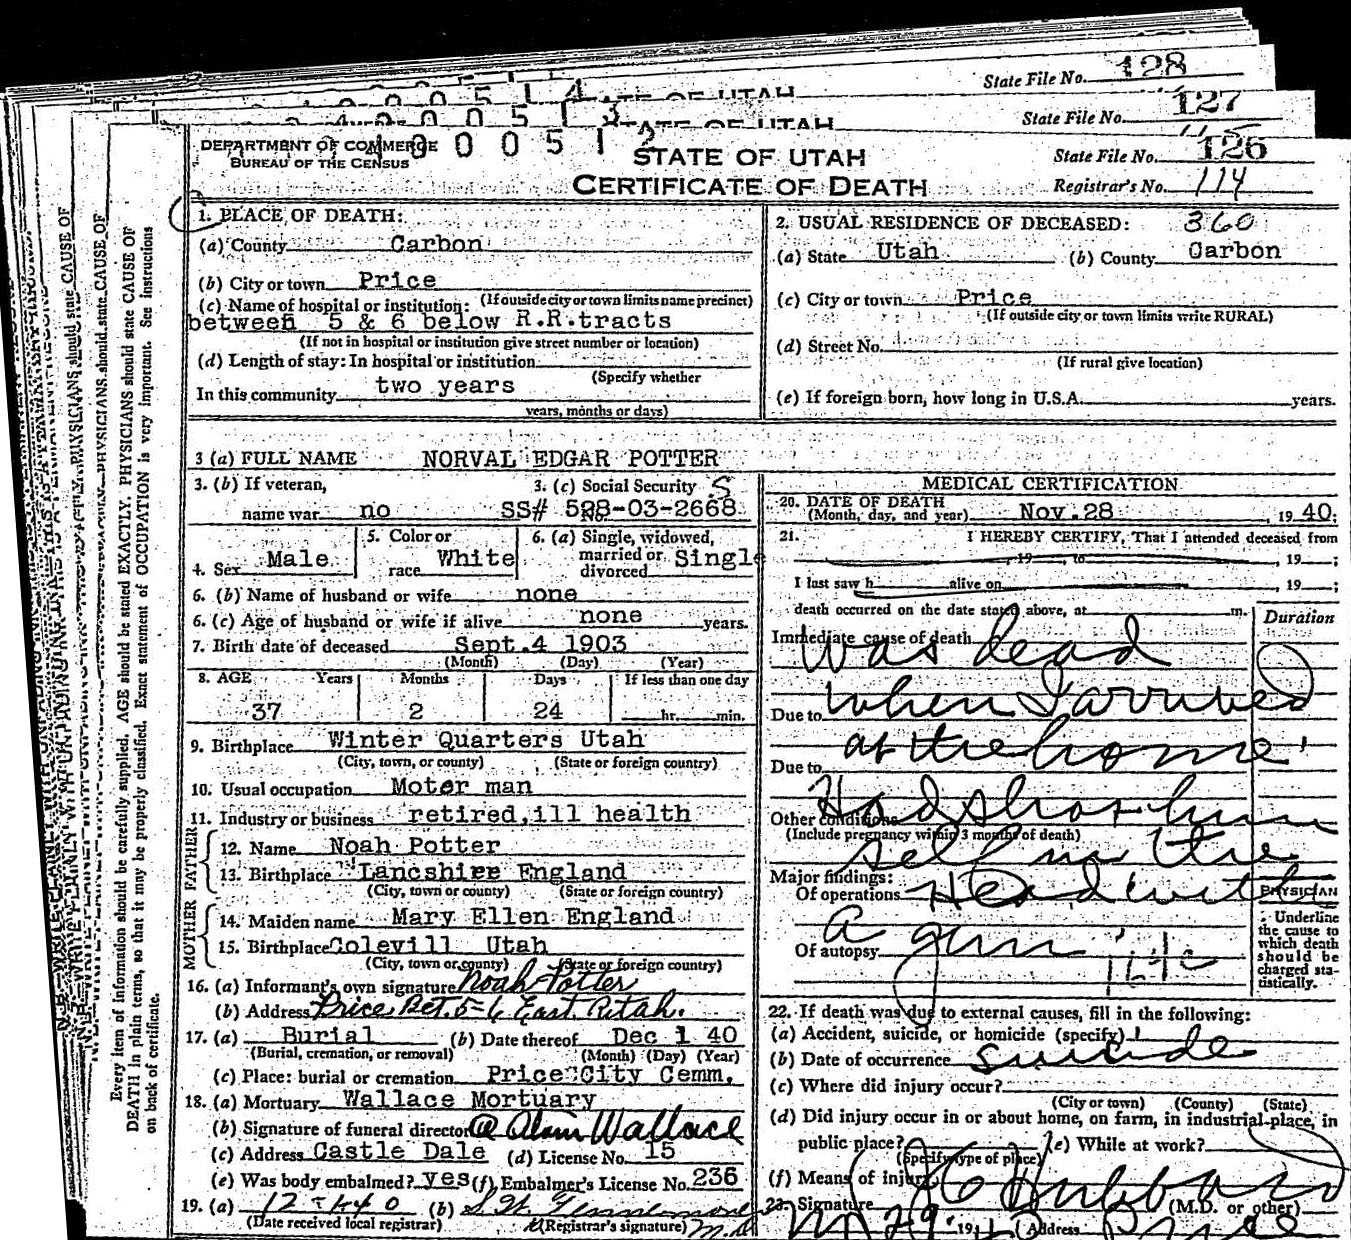 State File No. 128
STATE OF UTAH
State File No. 127
STATE OF UTAH
DEPARTMENT OF COMMERCE
BUREAU OF THE CENSUS
STATE OF UTAH
CERTIFICATE OF DEATH
State File No. 126
Registrar's No. 114
1. PLACE OF DEATH:
(a) County Carbon
(b) City or town Price
(If outside city or town limits name precinct)
(c) Name of hospital or institution:
between 5 & 6 below R.R.tracts
(If not in hospital or institution give street number or location)
(d) Length of stay: In hospital or institution
(Specify whether
In this community two years
years, months or days)
2. USUAL RESIDENCE OF DECEASED: 360
(a) State Utah (b) County Carbon
(c) City or town Price
(If outside city or town limits write RURAL)
(d) Street No.
(If rural give location)
(e) If foreign born, how long in U.S.A. years.
3 (a) FULL NAME NORVAL EDGAR POTTER
3. (b) If veteran, name war no
3. (c) Social Security S
SS# 528-03-2668
4. Sex Male
5. Color or race White
6. (a) Single, widowed, married or divorced Single
6. (b) Name of husband or wife none
6. (c) Age of husband or wife if alive none years.
7. Birth date of deceased Sept.4 1903
(Month) (Day) (Year)
8. AGE Years Months Days If less than one day
37 2 24 hr. min.
9. Birthplace Winter Quarters Utah
(City, town, or county) (State or foreign country)
10. Usual occupation Moter man
11. Industry or business retired,ill health
FATHER
12. Name Noah Potter
13. Birthplace Lancshire England
(City, town or county) (State or foreign country)
MOTHER
14. Maiden name Mary Ellen England
15. Birthplace Colevill Utah
(City, town or county) (State or foreign country)
16. (a) Informant's own signature Noah Potter
(b) Address Price Bet. 5-6 East. Utah.
17. (a) Burial (b) Date thereof Dec 1 40
(Burial, cremation, or removal) (Month) (Day) (Year)
(c) Place: burial or cremation Price City Cemm.
18. (a) Mortuary Wallace Mortuary
(b) Signature of funeral director Wallace
(c) Address Castle Dale (d) License No. 15
(e) Was body embalmed? yes (f) Embalmer's License No. 236
19. (a) 12-1-40 (b)
(Date received local registrar) (Registrar's signature)
MEDICAL CERTIFICATION
20. DATE OF DEATH
(Month, day, and year) Nov.28, 1940;
21. I HEREBY CERTIFY, That I attended deceased from
19 to , 19 ;
I last saw h alive on , 19 ;
death occurred on the date stated above, at m.
Duration
Immediate cause of death Was dead
Due to when I arrived
Due to at the home
Other conditions Had shot him
(Include pregnancy within 3 months of death)
self in the
Major findings:
Of operations Head with
Of autopsy a gun
PHYSICIAN
Underline the cause to which death should be charged statistically.
22. If death was due to external causes, fill in the following:
(a) Accident, suicide, or homicide (specify)
(b) Date of occurrence suicide
(c) Where did injury occur?
(City or town) (County) (State)
(d) Did injury occur in or about home, on farm, in industrial place, in public place? (e) While at work?
(Specify type of place)
(f) Means of injury
23. Signature Hubbard (M.D. or other)
19 Address Price
Every item of information should be carefully supplied. AGE should be stated EXACTLY. PHYSICIANS should state CAUSE OF
DEATH in plain terms, so that it may be properly classified. Exact statement of OCCUPATION is very important. See instructions
on back of certificate.